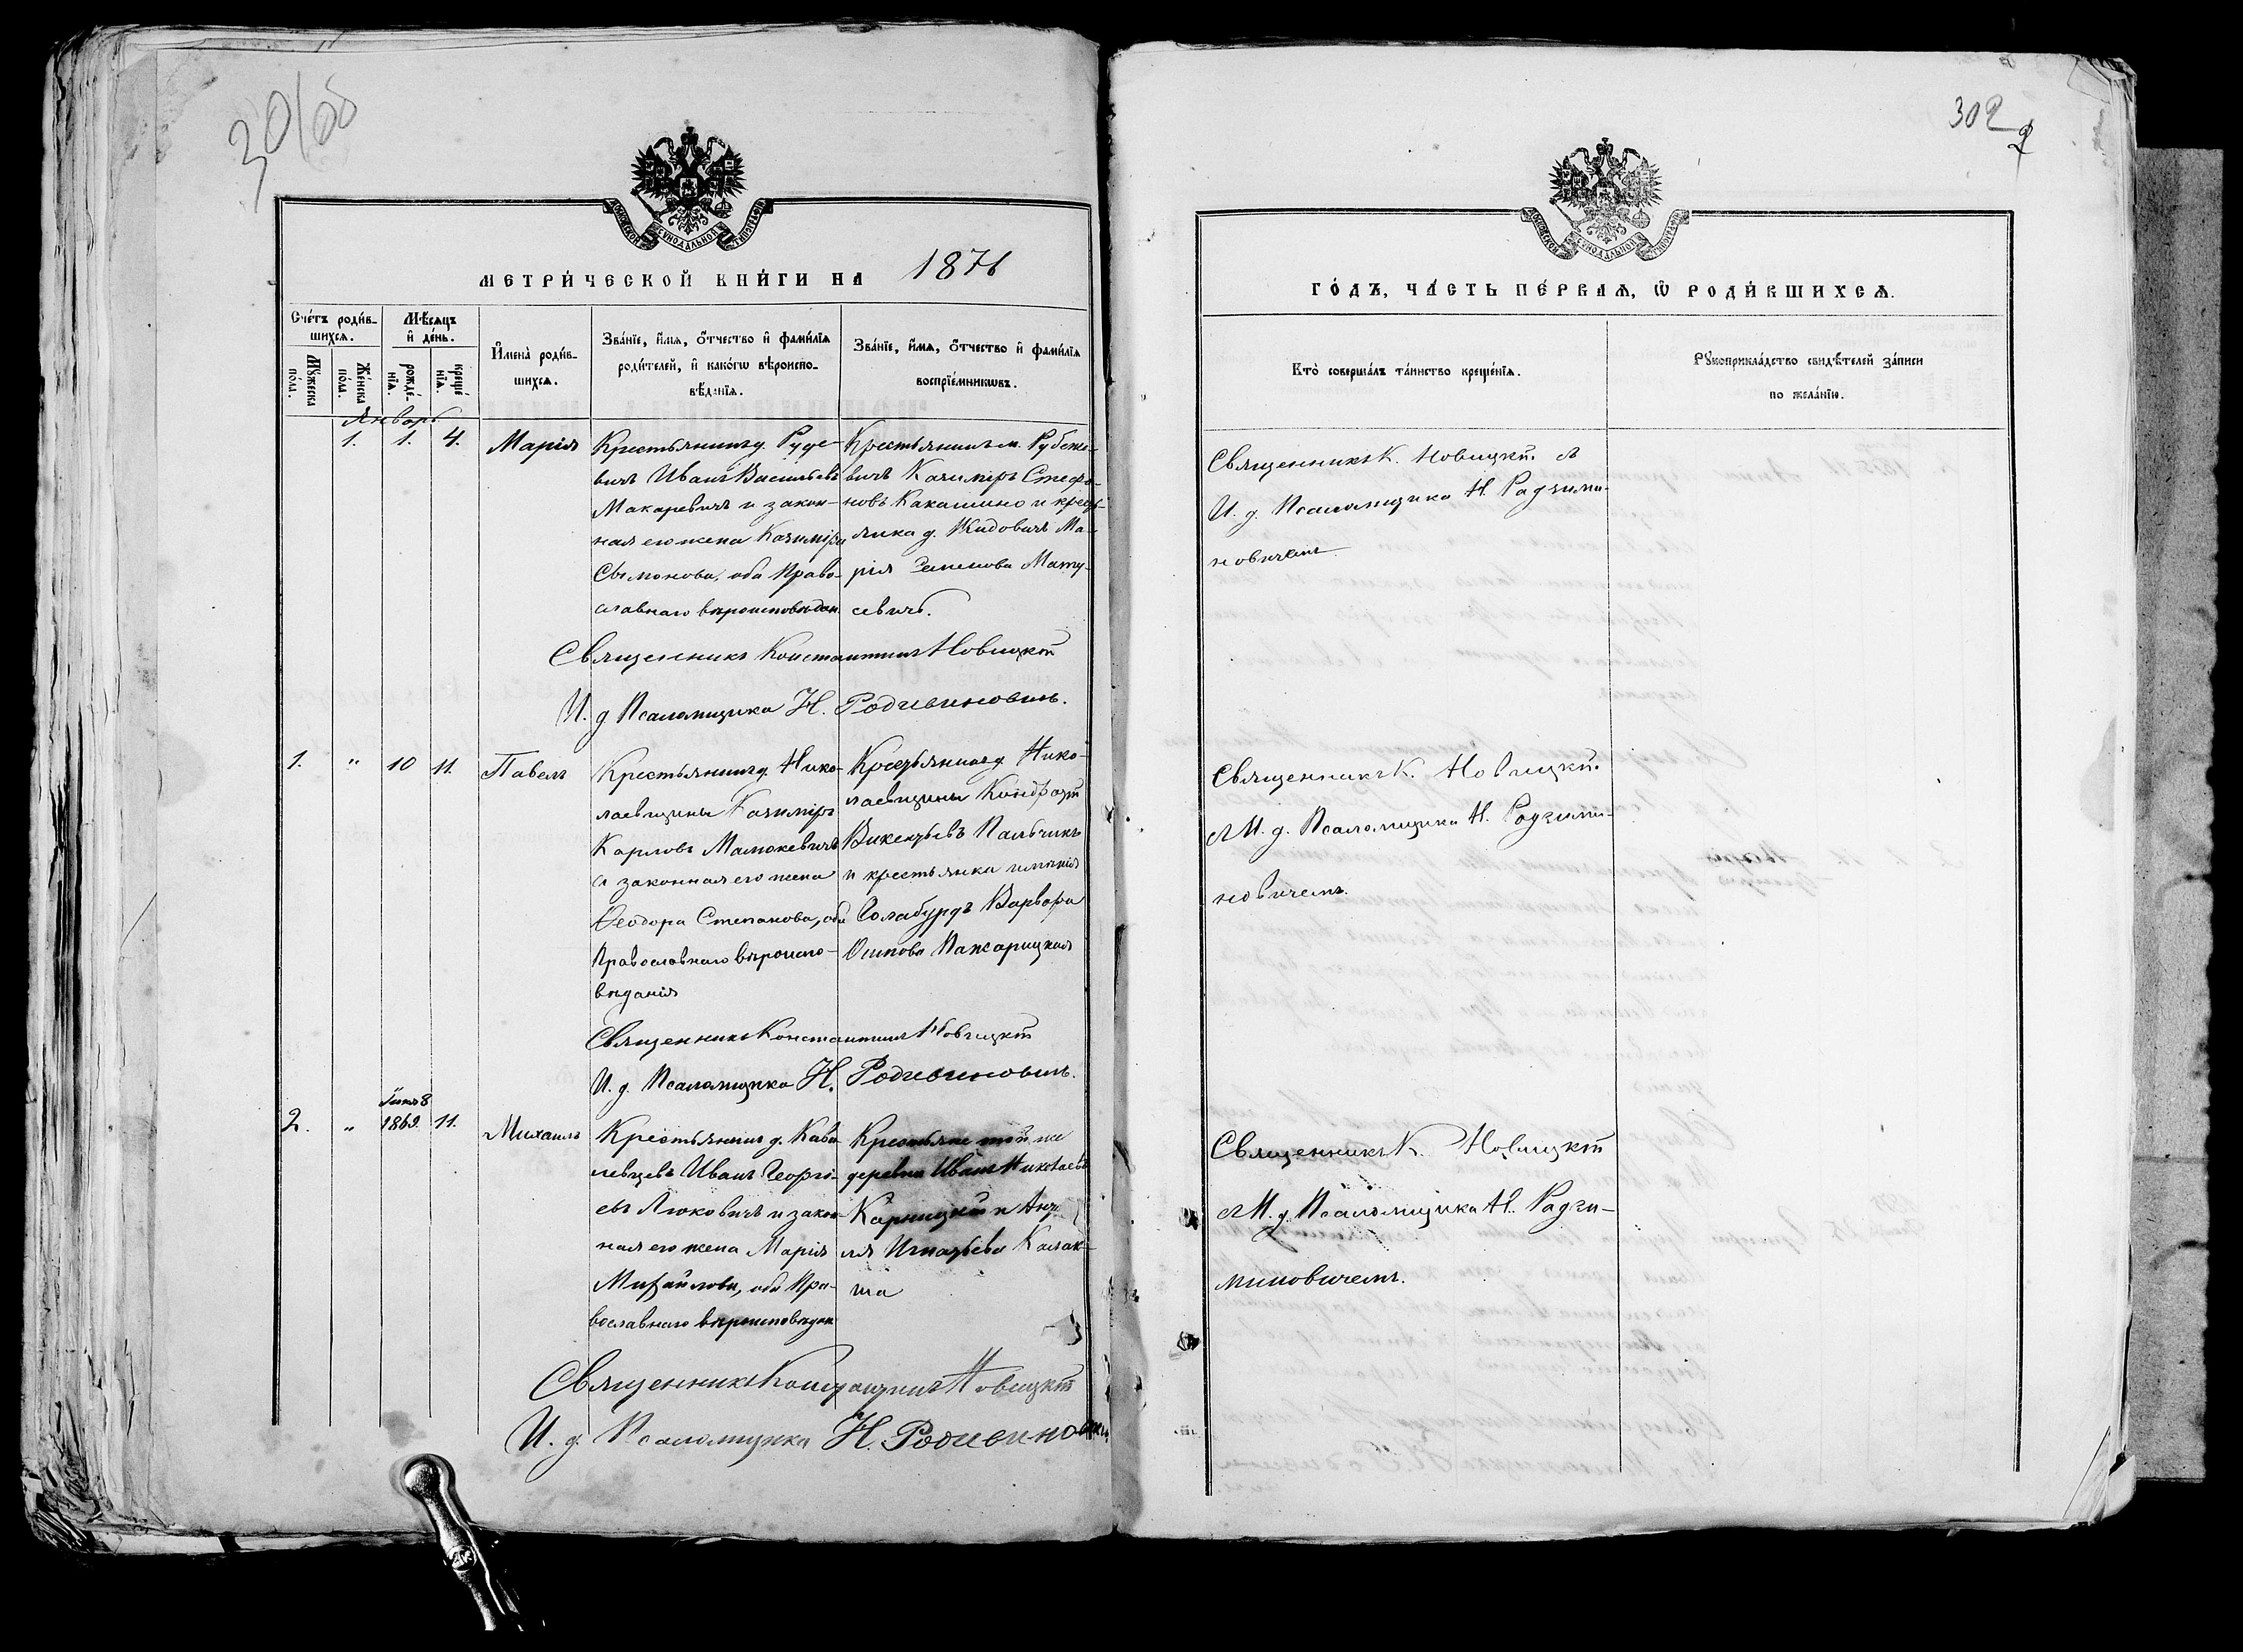 301об
302
2
МОСКОВСКОЙ СѴНОДАЛЬНОЙ ТИПОГРАФІИ
МЕТРИ́ЧЕСКОЙ КНИ́ГИ НА 1871
Сче́тъ роди́в-
шихся.
Мѣ́сяцъ
и҆ де́нь.
И҆мена̀ роди́в-
шихся.
Зва́нїе, и҆́мя, ѻ҆́тчество и҆ фами́лїя
роди́телей, и҆ како́гѡ вѣроиспо-
вѣ́данїя.
Зва́нїе, и҆́мя, ѻ҆́тчество и҆ фами́лїя
воспрїе́мникѡвъ.
Мꙋ́жеска
по́ла.
Же́нска
по́ла.
рожде́-
нїя.
креще́
нїя.
Январь
1. 1. 4. Марія
Крестьянинъ д. Руде-
вичъ Иванъ Васильевъ
Макаревичъ и закон-
ная его жена Казиміра
Сымонова, оба Право-
славнаго вѣроисповѣдан.
Крестьянинъ м. Рубеже-
вичъ Казиміръ Стефа-
новъ Какашино и кресть-
янка д. Жидовичъ Ма-
рія Семенова Мату-
севичъ.
Священникъ Константинъ Новицкій
И. д. Псаломщика Н. Родзевиновичъ.
1. " 10 11. Павелъ
Крестьянинъ д. Нико-
лаевщины Казиміръ
Карловъ Мамокевичъ
и законная его жена
Ѳеодора Степанова, оба
Православнаго вѣроиспо-
вѣданія
Крестьянинъ д. Нико-
лаевщины Кондратій
Викентьевъ Пальчикъ
и крестьянка имѣнія
Солабурдъ Варвара
Осипова Пажарицкая
Священникъ Константинъ Новицкій
И. д. Псаломщика Н. Родзевиновичъ.
2. " 8 1869. 11. Михаилъ
Крестьянинъ д. Кава-
левцевъ Иванъ Георгі-
евъ Люковичъ и закон-
ная его жена Марія
Михайлова, оба Пра-
вославнаго вѣроисповѣдан
Крестьяне той же
деревни Иванъ Николаевъ
Карницкій и Анге
ля Игнатьева Казак-
ша
Священникъ Константинъ Новицкій
И. д. Псаломщика Н. Родзевинович
МОСКОВСКОЙ СѴНОДАЛЬНОЙ ТИПОГРАФІИ
ГО́ДЪ, ЧА́СТЬ ПЕ́РВАЯ, Ѡ҆ РОДИ́ВШИХСЯ.
Кто̀ соверша́лъ та́инство креще́нїя.
Рꙋкоприкла́дство свидѣ́телей за́писи
по жела́нїю.
Священникъ К. Новицкій съ
И. д. Псаломщика Н. Радзими-
новичемъ
Священникъ К. Новицкій
съ И. д. Псаломщика Н. Радзими-
новичемъ.
Священникъ К. Новицкій
съ И. д. Псаломщика Н. Радзи-
миновичемъ.